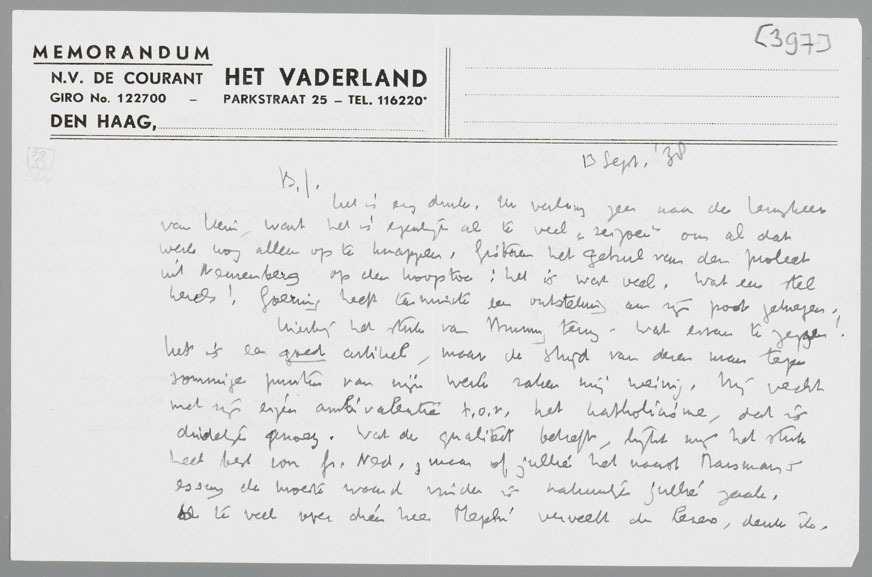 [397]
MEMORANDUM
N.V. DE COURANT HET VADERLAND
GIRO No. 122700 – PARKSTRAAT 25 – TEL. 116220*
DEN HAAG,
13 Sept. '38
B.f.
Het is erg druk. Ik verlang zeer naar de terugkeer
van want het is eigenlijk al te veel „seizoen" om al dat
werk nog alleen op te knappen. Gisteren het gebrul van den proleet
uit Neurenberg op den koop toe: het is wat veel. Wat een stel
kerels! Goering heeft tenminste een ontsteking aan zijn poot gekregen.
Hierbij het stuk van terug. Wat ervan te zeggen!
Het is een goed artikel, maar de strijd van dezen man tegen
sommige punten van mijn werk raken mij weinig. Hij vecht
met zijn eigen ambivalentie t.o.v. het katholicisme, dat is
duidelijk genoeg. Wat de qualiteit betreft, lijkt mij het stuk
heel best voor Gr. Ned., maar of jullie het naast Marsman's
essay de moeite waard vinden is natuurlijk jullie zaak.
Al te veel over één heer Mephi verveelt de lezers, denk ik.